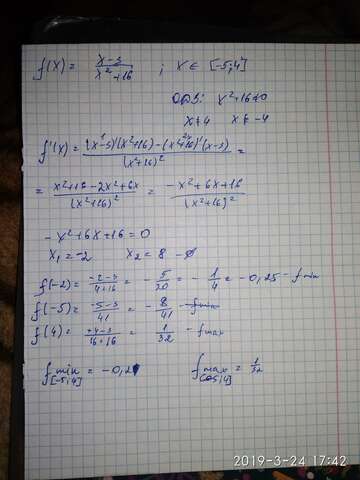 f(x) = x-3 / x²+16 ; x ∈ [-5;4]
ОДЗ: x²+16≠0
x≠4 x≠-4
f'(x) = (x-3)'(x²+16)-(x²+16)'(x-3) / (x²+16)² =
= x²+16-2x²+6x / (x²+16)² = -x²+6x+16 / (x²+16)²
-x²+6x+16=0
x₁=-2 x₂=8 -
f(-2)= -2-3 / 4+16 = -5/20 = -1/4 = -0,25 - f min
f(-5)= -5-3 / 41 = -8/41 - f min
f(4)= +4-3 / 16+16 = 1/32 - f max
f min [-5;4] = -0,2
f max [-5;4] = 1/32
2019-3-24 17:42